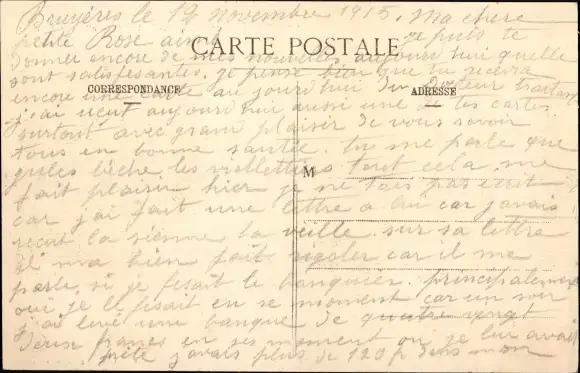 Bruyères le 12 novembre 1915. Ma chere
petite Rose ainsi je puis te
CARTE POSTALE
donner encore de mes nouvelles aujourd hui quelle
sont satisfesantes. je pense bien que tu recevra
encore une carte aujourd hui du Docteur traitant
CORRESPONDANCE
ADRESSE
j'ai ausi aujourd hui aussi une de tes cartes
surtout avec grand plaisir de vous savoir
tous en bonne santée. tu me parle que
bêche les violettiers tout cela me
M
fait plaisir hier je ne tais pas écrit
car j'ai fait une lettre a car javais
recut la sienne la veille. sur sa lettre
il ma bien fait rigoler car il me
parle si je fesait le banquier. principalement
oui je le fesait en se moment car un soir
j'ai levé une banque de quatre vingt
Deux francs en ses moment ou je lui avait
prêté javais plus de 120 f dans mon